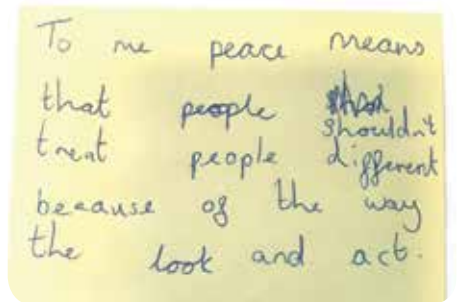 To me peace means
that people shouldn't
treat people different
because of the way
the look and act.